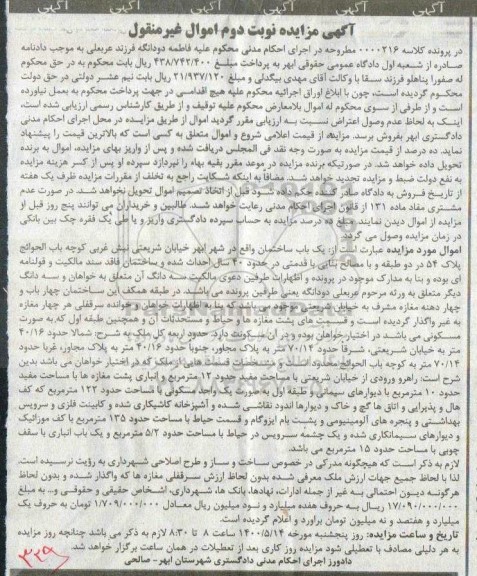 آگهی آگهی آگهی آگهی آگهی
آگهی مزایده نوبت دوم اموال غیرمنقول
در پرونده کلاسه ۰۰۰۰۲۱۶ مطروحه در اجرای احکام مدنی محکوم علیه فاطمه دودانگه فرزند عربعلی به موجب دادنامه
صادره از شعبه اول دادگاه عمومی حقوقی ابهر به پرداخت مبلغ ۴۳۸/۷۴۲/۴۰۰ ریال بابت محکوم به در حق محکوم
له صفورا پناهلو فرزند سقا با وکالت آقای مهدی بیگدلی و مبلغ ۲۱/۹۳۷/۱۲۰ ریال بابت نیم عشر دولتی در حق دولت
محکوم گردیده است، چون با ابلاغ اوراق اجرائیه محکوم علیه هیچ اقدامی در جهت پرداخت محکوم به بعمل نیاورده
است و از طرفی از سوی محکوم له اموال بلامعارض محکوم علیه توقیف و از طریق کارشناس رسمی ارزیابی شده است،
اینک به لحاظ عدم وصول اعتراض نسبت به ارزیابی مقرر گردید اموال از طریق مزایده در محل اجرای احکام مدنی
دادگستری ابهر بفروش برسد. مزایده از قیمت اعلامی شروع و اموال متعلق به کسی است که بالاترین قیمت را پیشنهاد
نماید. ده درصد از قیمت مزایده به صورت وجه نقد فی المجلس دریافت شده و پس از واریز بهای مزایده، اموال به برنده
تحویل داده خواهد شد. در صورتیکه برنده مزایده در موعد مقرر بقیه بهاء را نپردازد سپرده او پس از کسر هزینه مزایده
به نفع دولت ضبط و مزایده تجدید خواهد شد. مضافا به اینکه شکایت راجع به تخلف از مقررات مزایده ظرف یک هفته
از تاریخ فروش به دادگاه صادر کننده حکم داده شود قبل از اتخاذ تصمیم اموال تحویل نخواهد شد. در صورت عدم
مشتری مفاد ماده ۱۳۱ از قانون اجرای احکام مدنی رعایت خواهد شد. طالبین و خریداران می توانند پنج روز قبل از
مزایده از اموال دیدن نمایند. مبلغ ده درصد مزایده به حساب سپرده دادگستری واریز و یا طی یک فقره چک بین بانکی
در زمان مزایده وصول می گردد.
اموال مورد مزایده عبارت است از: یک باب ساختمان واقع در شهر ابهر خیابان شریعتی نبش غربی کوچه باب الحوائج
پلاک ۵۴ در دو طبقه و با مصالح بنایی با قدمتی در حدود ۴۰ سال احداث شده و ساختمان فاقد سند مالکیت و قولنامه
ای بوده و بنا به مدارک موجود در پرونده و اظهارات طرفین دعوی مالکیت سه دانگ آن متعلق به خواهان و سه دانگ
دیگر متعلق به ورثه مرحوم عربعلی دودانگه یعنی طرفین پرونده می باشد. در طبقه همکف این ساختمان چهار باب و
چهار دهنه مغازه مشرف به خیابان شریعتی موجود است که بنا به اظهارات خواهان و خوانده سرقفلی هر چهار مغازه
به غیر واگذار گردیده است و قسمت های پشت مغازه ها و حیاط و مستحدثات آن و همچنین طبقه اول که به صورت
مسکونی می باشد در اختیار خواهان بوده و در آن سکونت دارد. حدود اربعه کل ملک به شرح: شمالا حدود ۴۰/۱۶
متر به خیابان شریعتی، شرقا حدود ۷۰/۱۴ متر به پلاک مجاور، جنوبا حدود ۴۰/۱۶ متر به پلاک مجاور، غربا حدود
۷۰/۱۴ متر به کوچه باب الحوائج محدود است و مشخصات قسمت هایی از ملک که در اختیار خواهان می باشد بدین
شرح است: راهرو ورودی از خیابان شریعتی با مساحت حدود ۱۲ مترمربع و انباری پشت مغازه ها با مساحت مفید
حدود ۱۰ مترمربع با دیوارهای سیمانی و طبقه اول به صورت یک واحد مسکونی با مساحت حدود ۱۲۲ مترمربع که کف
هال و پذیرایی و اتاق ها گچ و خاک و دیوارها اندود نقاشی شده و آشپزخانه کاشیکاری شده و کابینت فلزی و سرویس
بهداشتی و پنجره های آلومینیومی و پشت بام ایزوگام و قسمت حیاط با مساحت حدود ۱۳۵ مترمربع با کف موزائیک
و دیوارهای سیمانکاری شده و یک چشمه سرویس در حیاط با مساحت حدود ۵/۲ مترمربع و یک باب انباری با سقف
چوبی با مساحت حدود ۱۵ مترمربع می باشد.
لازم به ذکر است که هیچگونه مدرکی در خصوص ساخت و ساز و طرح اصلاحی شهرداری به رؤیت نرسیده است.
لذا با لحاظ جمیع جهات ارزش ملک معرفی شده بدون لحاظ ارزش سرقفلی مغازه ها که واگذار شده و بدون لحاظ
هرگونه دیون احتمالی به غیر از جمله ادارات، نهادها، بانک ها، شهرداری، اشخاص حقیقی و حقوقی و... به مبلغ
۱۷/۰۹۰/۰۰۰/۰۰۰ ریال به حروف هفده میلیارد و نود میلیون ریال معادل ۱/۷۰۹/۰۰۰/۰۰۰ تومان به حروف یک
میلیارد و هفتصد و نه میلیون تومان برآورد و اعلام گردیده است.
تاریخ و ساعت مزایده: روز پنجشنبه مورخه ۱۴۰۰/۵/۱۴ ساعت ۸ تا ۸:۳۰ لازم به ذکر می باشد چنانچه روز مزایده
به هر دلیلی مصادف با تعطیلی شود مزایده روز کاری بعد از تعطیلات در همان ساعت برگزار خواهد شد.
دادورز اجرای احکام مدنی دادگستری شهرستان ابهر- صالحی